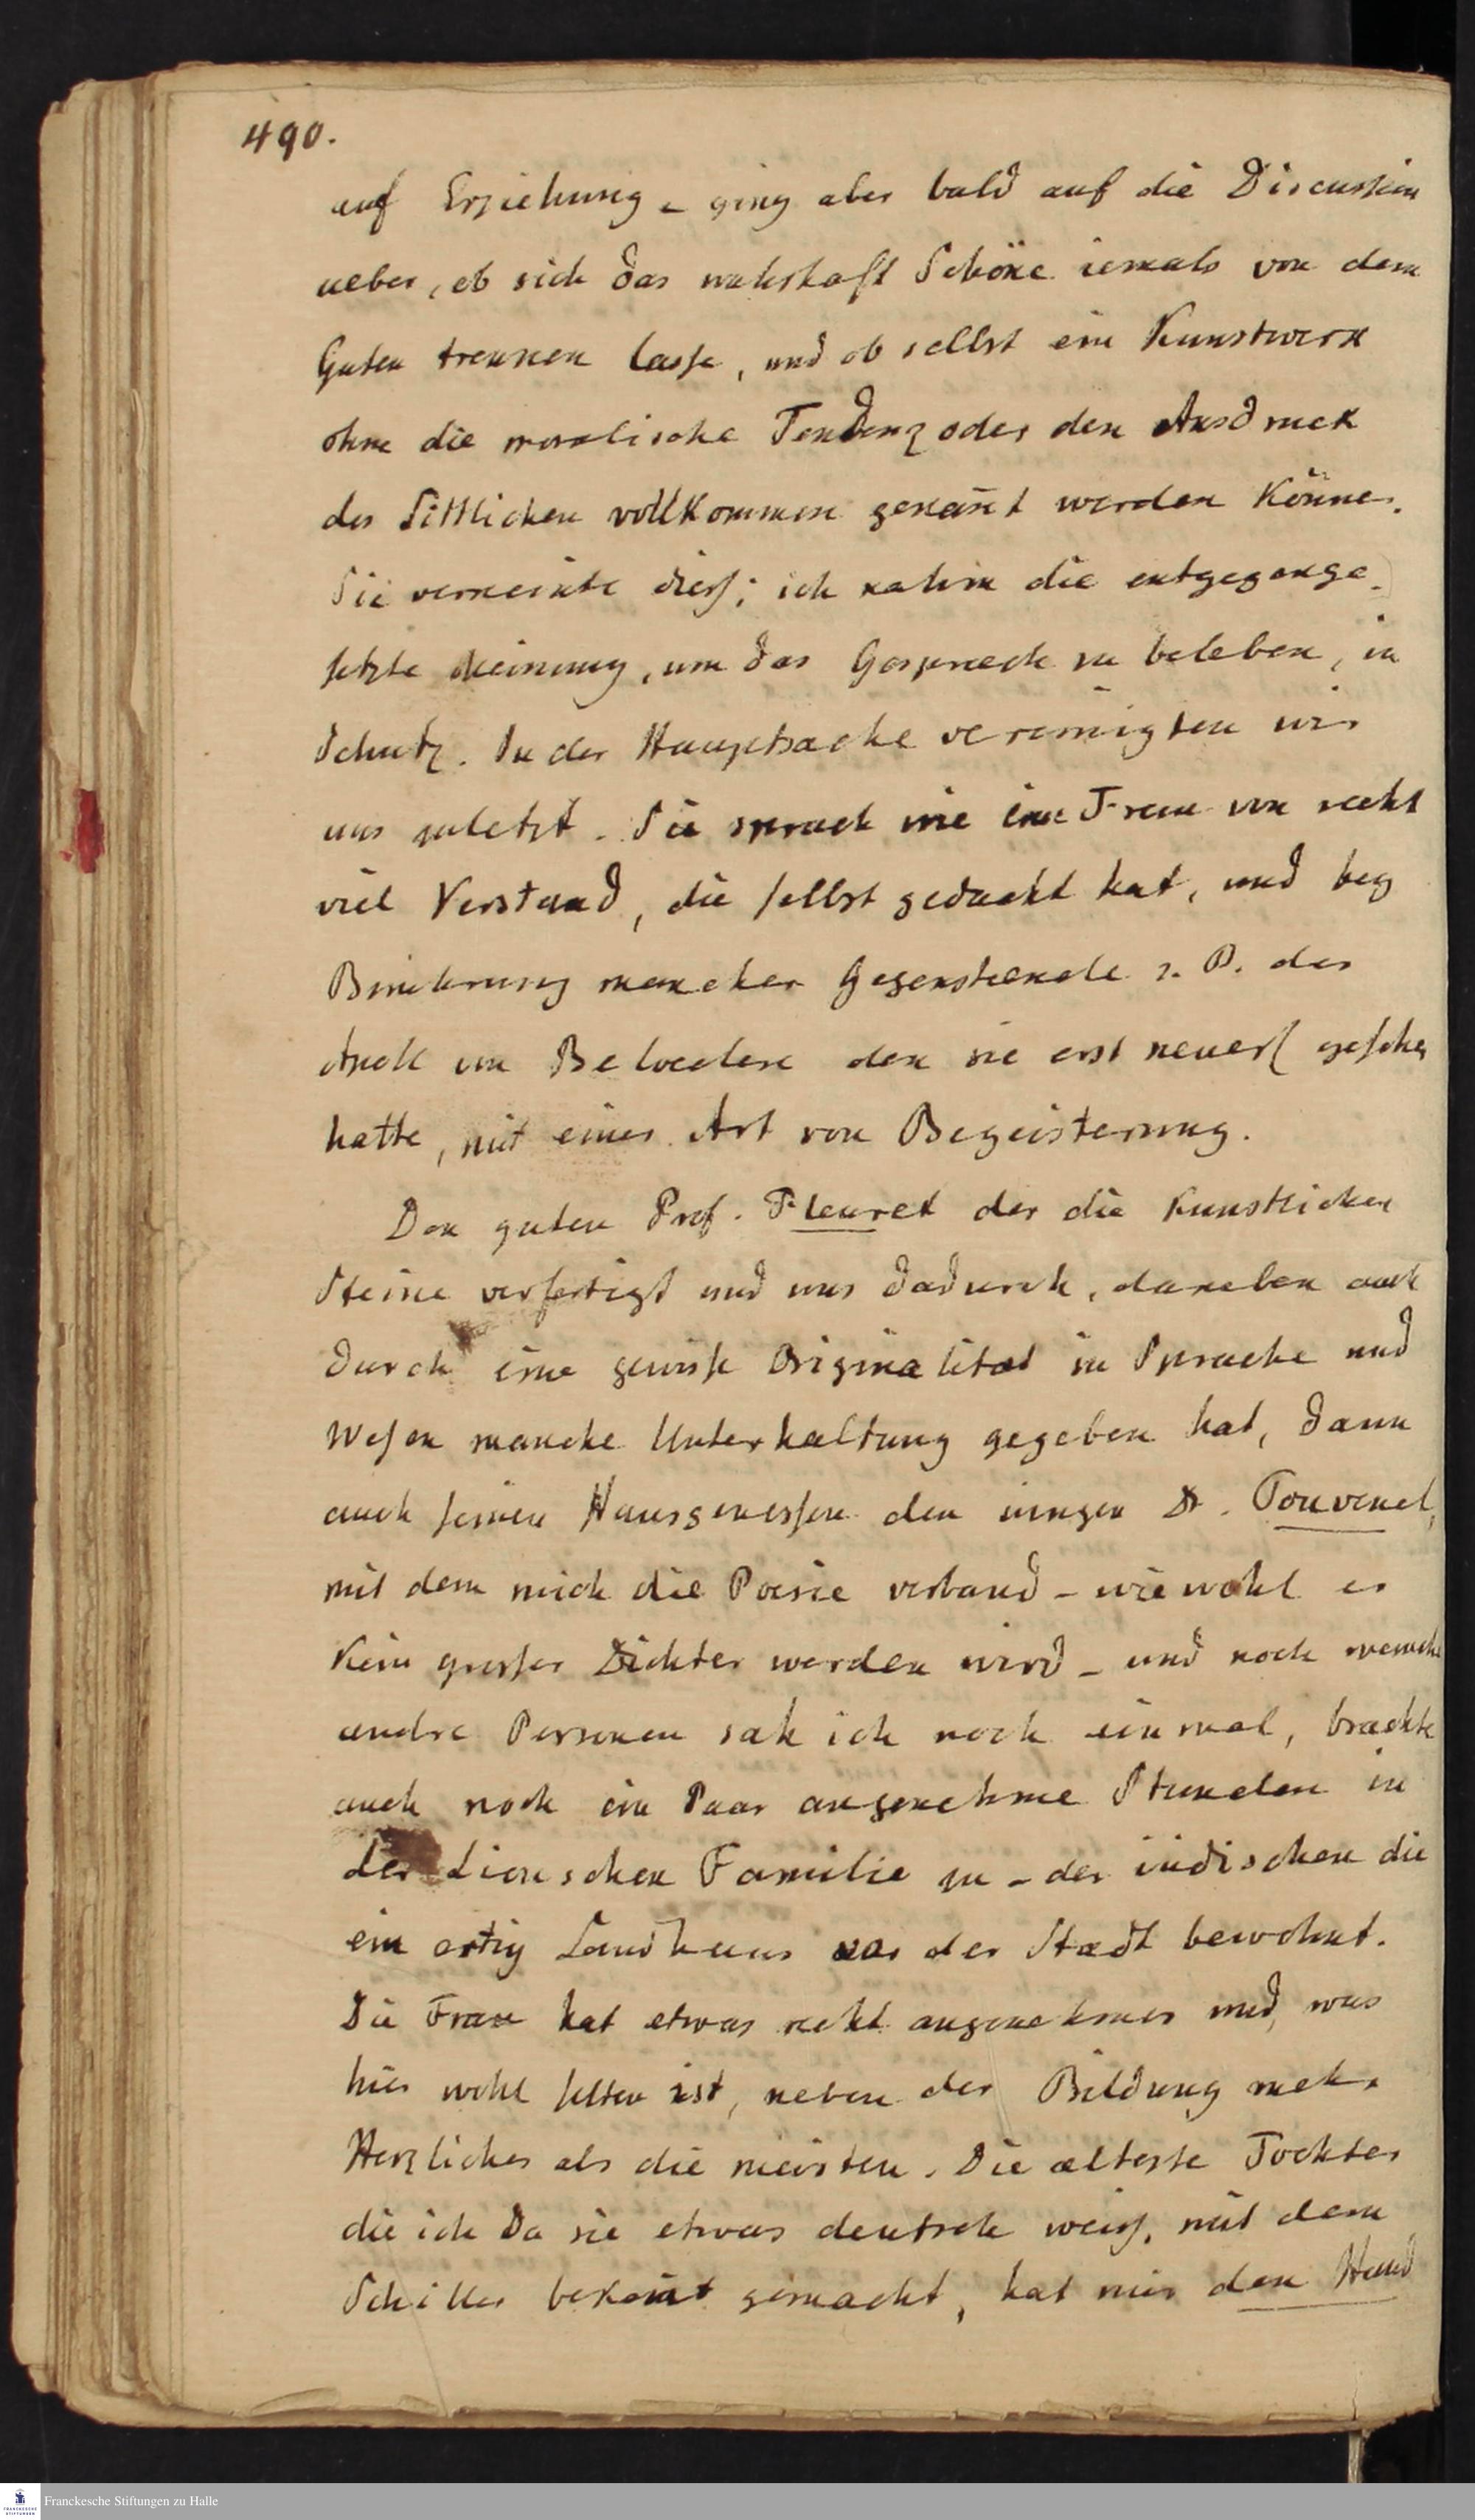 490.
auf Erziehung – ging aber bald auf die Discussion
ueber, ob sich das wahrhaft Schöne iemals von dem
Guten trennen lasse, und ob selbst ein Kunstwerk
ohne die moralische Tendenz oder den Ausdruck
des Sittlichen vollkommen genañt werden könne.
Sie verneinte dies; ich nahm die entgegenge-
setzte Meinung, um das Gespraech zu beleben, in
Schutz. In der Hauptsache vereinigten wir
uns zuletzt. Sie sprach wie eine Frau von recht
viel Verstand, die selbst gedacht hat, und bey
Berührung mancher Gegenstaende z. B. des
Apoll von Belvedere den sie erst neuerl gesehen
hatte, mit einer Art von Begeisterung.
Den guten Prof. Fleuret der die künstlichen
Steine verfertigt und uns dadurch, daneben auch
durch eine gewisse Originalitaet in Sprache und
Wesen manche Unterhaltung gegeben hat, dann
auch seinen Hausgenossen den iungen Dr. Touvenel,
mit dem mich die Poesie verband – wiewohl er
kein grosser Dichter werden wird – und noch manche
andre Personen sah ich noch einmal, brachte
auch noch ein Paar angenehme Stunden in
der Lionschen Familie zu – der iüdischen die
ein artig Landhaus vor der Stadt bewohnt.
Die Frau hat etwas recht angenehmes und, was
hier wohl selten ist, neben der Bildung mehr
Herzliches als die meisten. Die aelteste Tochter
die ich da sie etwas deutsch weis, mit dem
Schiller bekañt gemacht, hat mir den Hand
Franckesche Stiftungen zu Halle